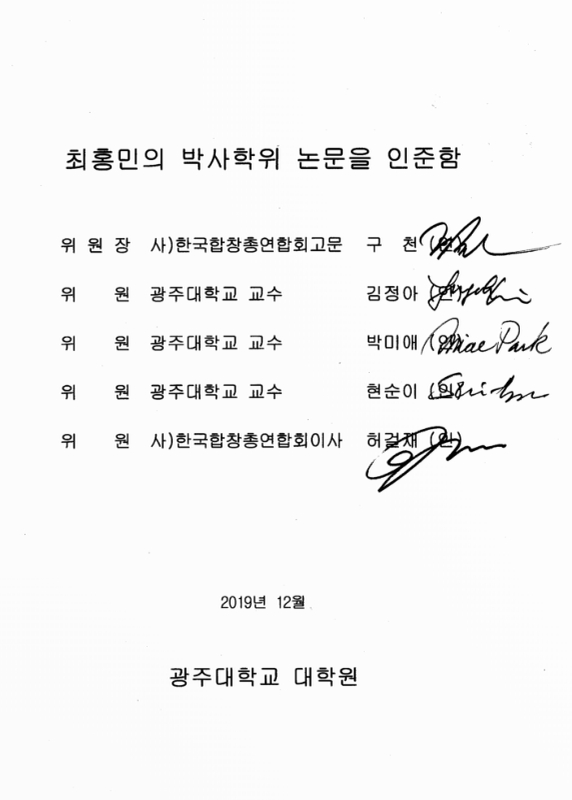 최홍민의 박사학위 논문을 인준함
위 원 장 사)한국합창총연합회고문 구 천 (인)
위 원 광주대학교 교수 김정아 (인)
위 원 광주대학교 교수 박미애 (인) Miae Park
위 원 광주대학교 교수 현순이 (인)
위 원 사)한국합창총연합회이사 허걸재 (인)
2019년 12월
광주대학교 대학원